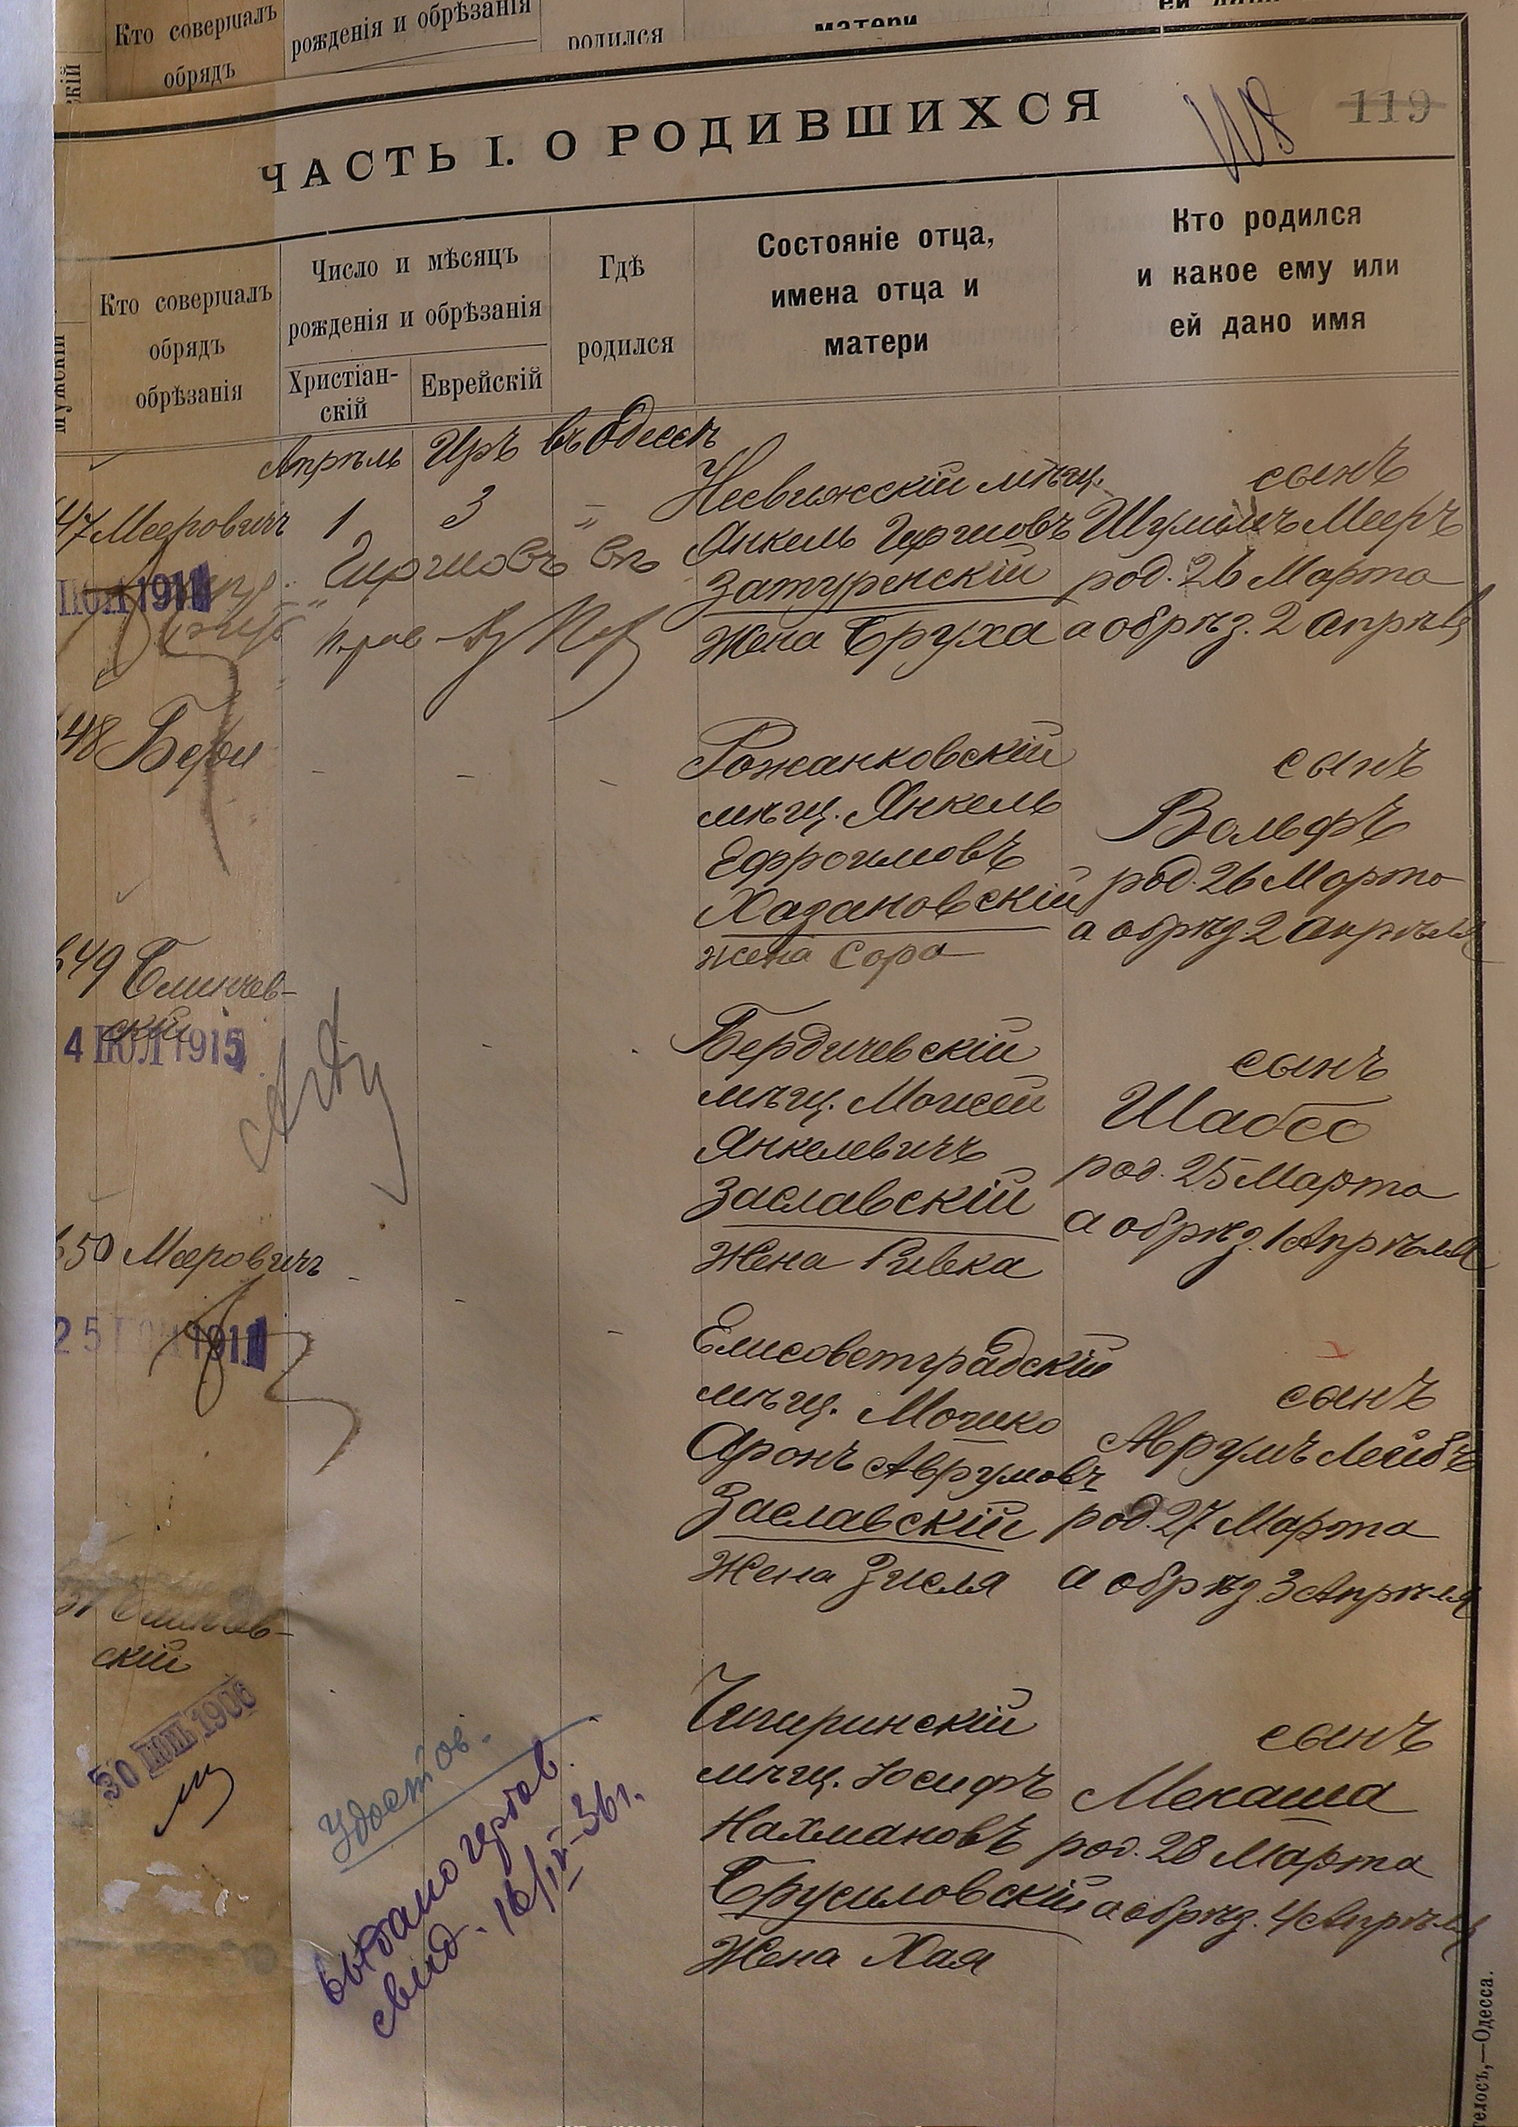 Кто совершалъ
обрядъ
рожденія и обрѣзанія
родился
матери
ЧАСТЬ I. О РОДИВШИХСЯ
118
119
Кто совершалъ
обрядъ
обрѣзанія
Число и мѣсяцъ
рожденія и обрѣзанія
Христіан-
скій
Еврейскій
Гдѣ
родился
Состояніе отца,
имена отца и
матери
Кто родился
и какое ему или
ей дано имя
Мужскій
Апрѣль Иръ въ Одессѣ
47 Мееровичъ
1 3 "
Несвижскій мѣщ.
Янкель Гершковъ
Затуренскій
Жена Бруха
сынъ
Шулимъ Мееръ
род. 26 Марта
а обрѣз. 2 Апрѣля
1911
48 Бери
Рожанковскій
мѣщ. Янкель
Ефроимовъ
Хазановскій
жена Сора
сынъ
Вольфъ
род. 26 Марта
а обрѣз. 2 Апрѣля
649 Блинчев-
скій
4 ІЮЛ 1915
Бердичевскій
мѣщ. Моисей
Янкелевичъ
Заславскій
Жена Ривка
сынъ
Шабсе
род. 25 Марта
а обрѣз. 1 Апрѣля
650 Мееровичъ
25 1911
Елисаветградскій
мѣщ. Мошко
Аронъ Аврумовъ
Заславскій
Жена Зисля
сынъ
Аврумъ Лейбъ
род. 27 Марта
а обрѣз. 3 Апрѣля
скій
30 ІЮНЬ 1906
Удостов.
выдано гербов.
свид. 16/IV-36 г.
Чигиринскій
мѣщ. Іосифъ
Нахмановъ
Брусиловскій
Жена Хая
сынъ
Менаша
род. 28 Марта
а обрѣз. 4 Апрѣля
телосъ,—Одесса.